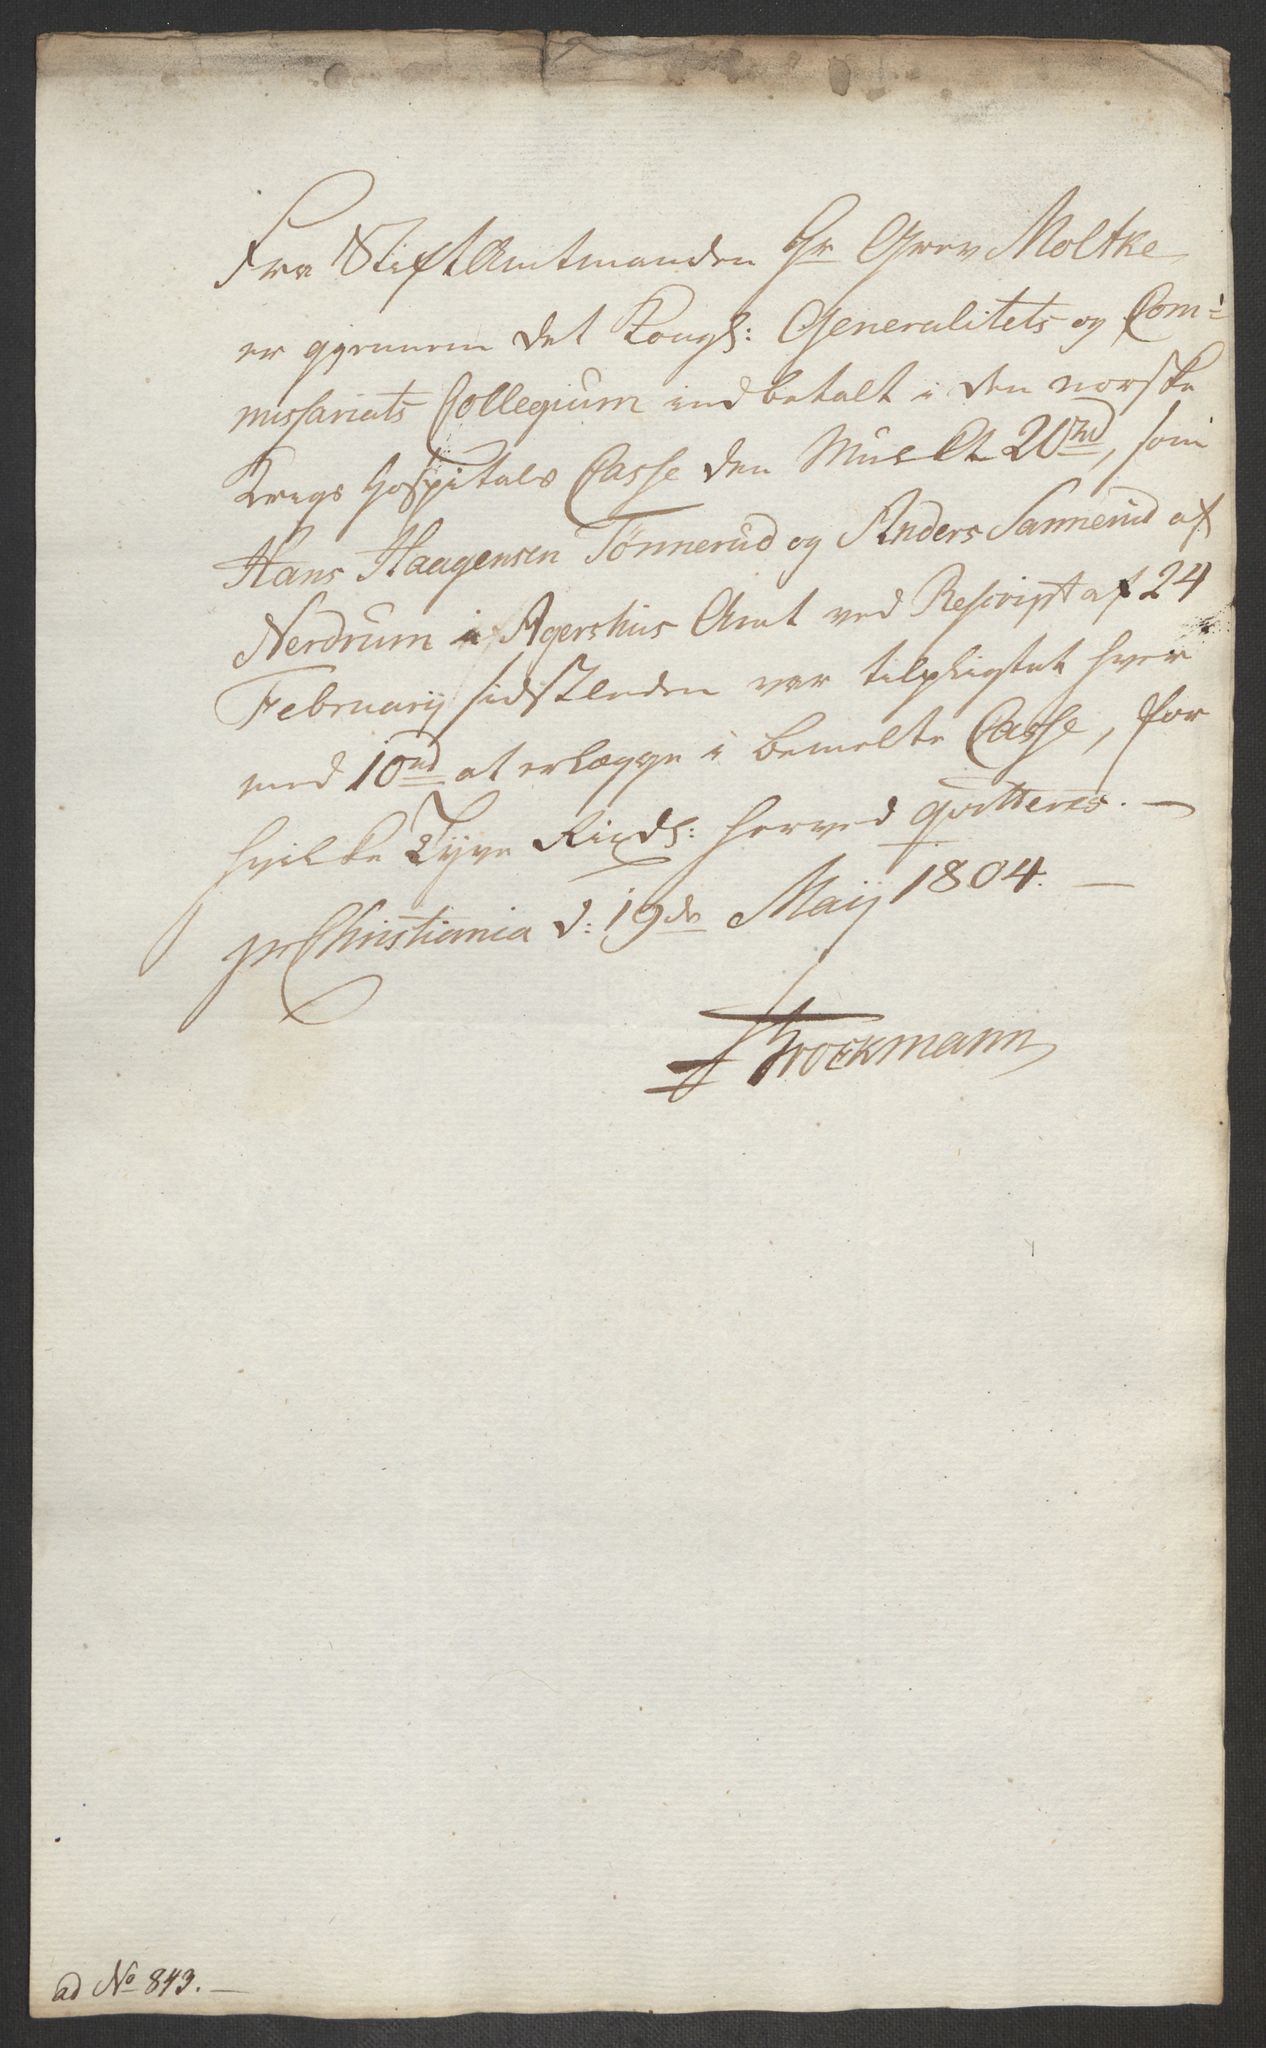 Fra Stiftamtmanden Hr Grev Moltke
er gjennem det Kongl: Generalitets og Com-
missariats Collegium indbetalt i den norske
Krigs Hospitals Casse den Mulct 20 rd, som
Hans Haagensen Tönnerud og Anders Sannerud af
Nerdrum i Agershus Amt ved Rescript af 24
Februarij sidstleden var tilpligtet hver
med 10 rd at erlægge i bemelte Casse, for
hvilke Tyve Rixdl: herved qvitteres. —
pr Christiania d: 19de Maij 1804. —
Brockmann
ad No 843. —